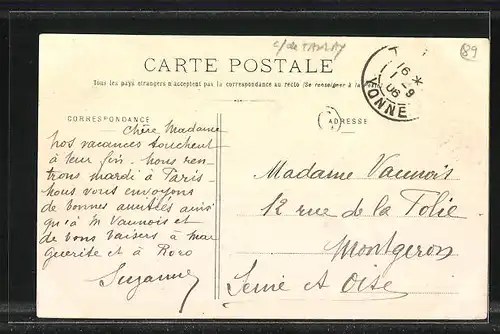 c/ de TANLAY
89
CARTE POSTALE
Tous les pays étrangers n'acceptent pas la correspondance au recto (Se renseigner à la
16
1 - 9
06
YONNE
CORRESPONDANCE
ADRESSE
Chère Madame
Nos vacances touchent
à leur fin. Nous ren-
trons mardi à Paris.
Nous vous envoyons
de bonnes amitiés ainsi
qu'à M Vaunois et
de bons baisers à Mar
guerite et à Roro
Suzanne
Madame Vaunois
12 rue de la Folie
Montgeron
Seine et Oise